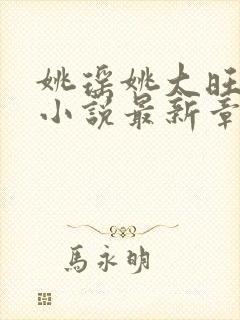 姚瑶姚太旺
小说最新章
馬永明